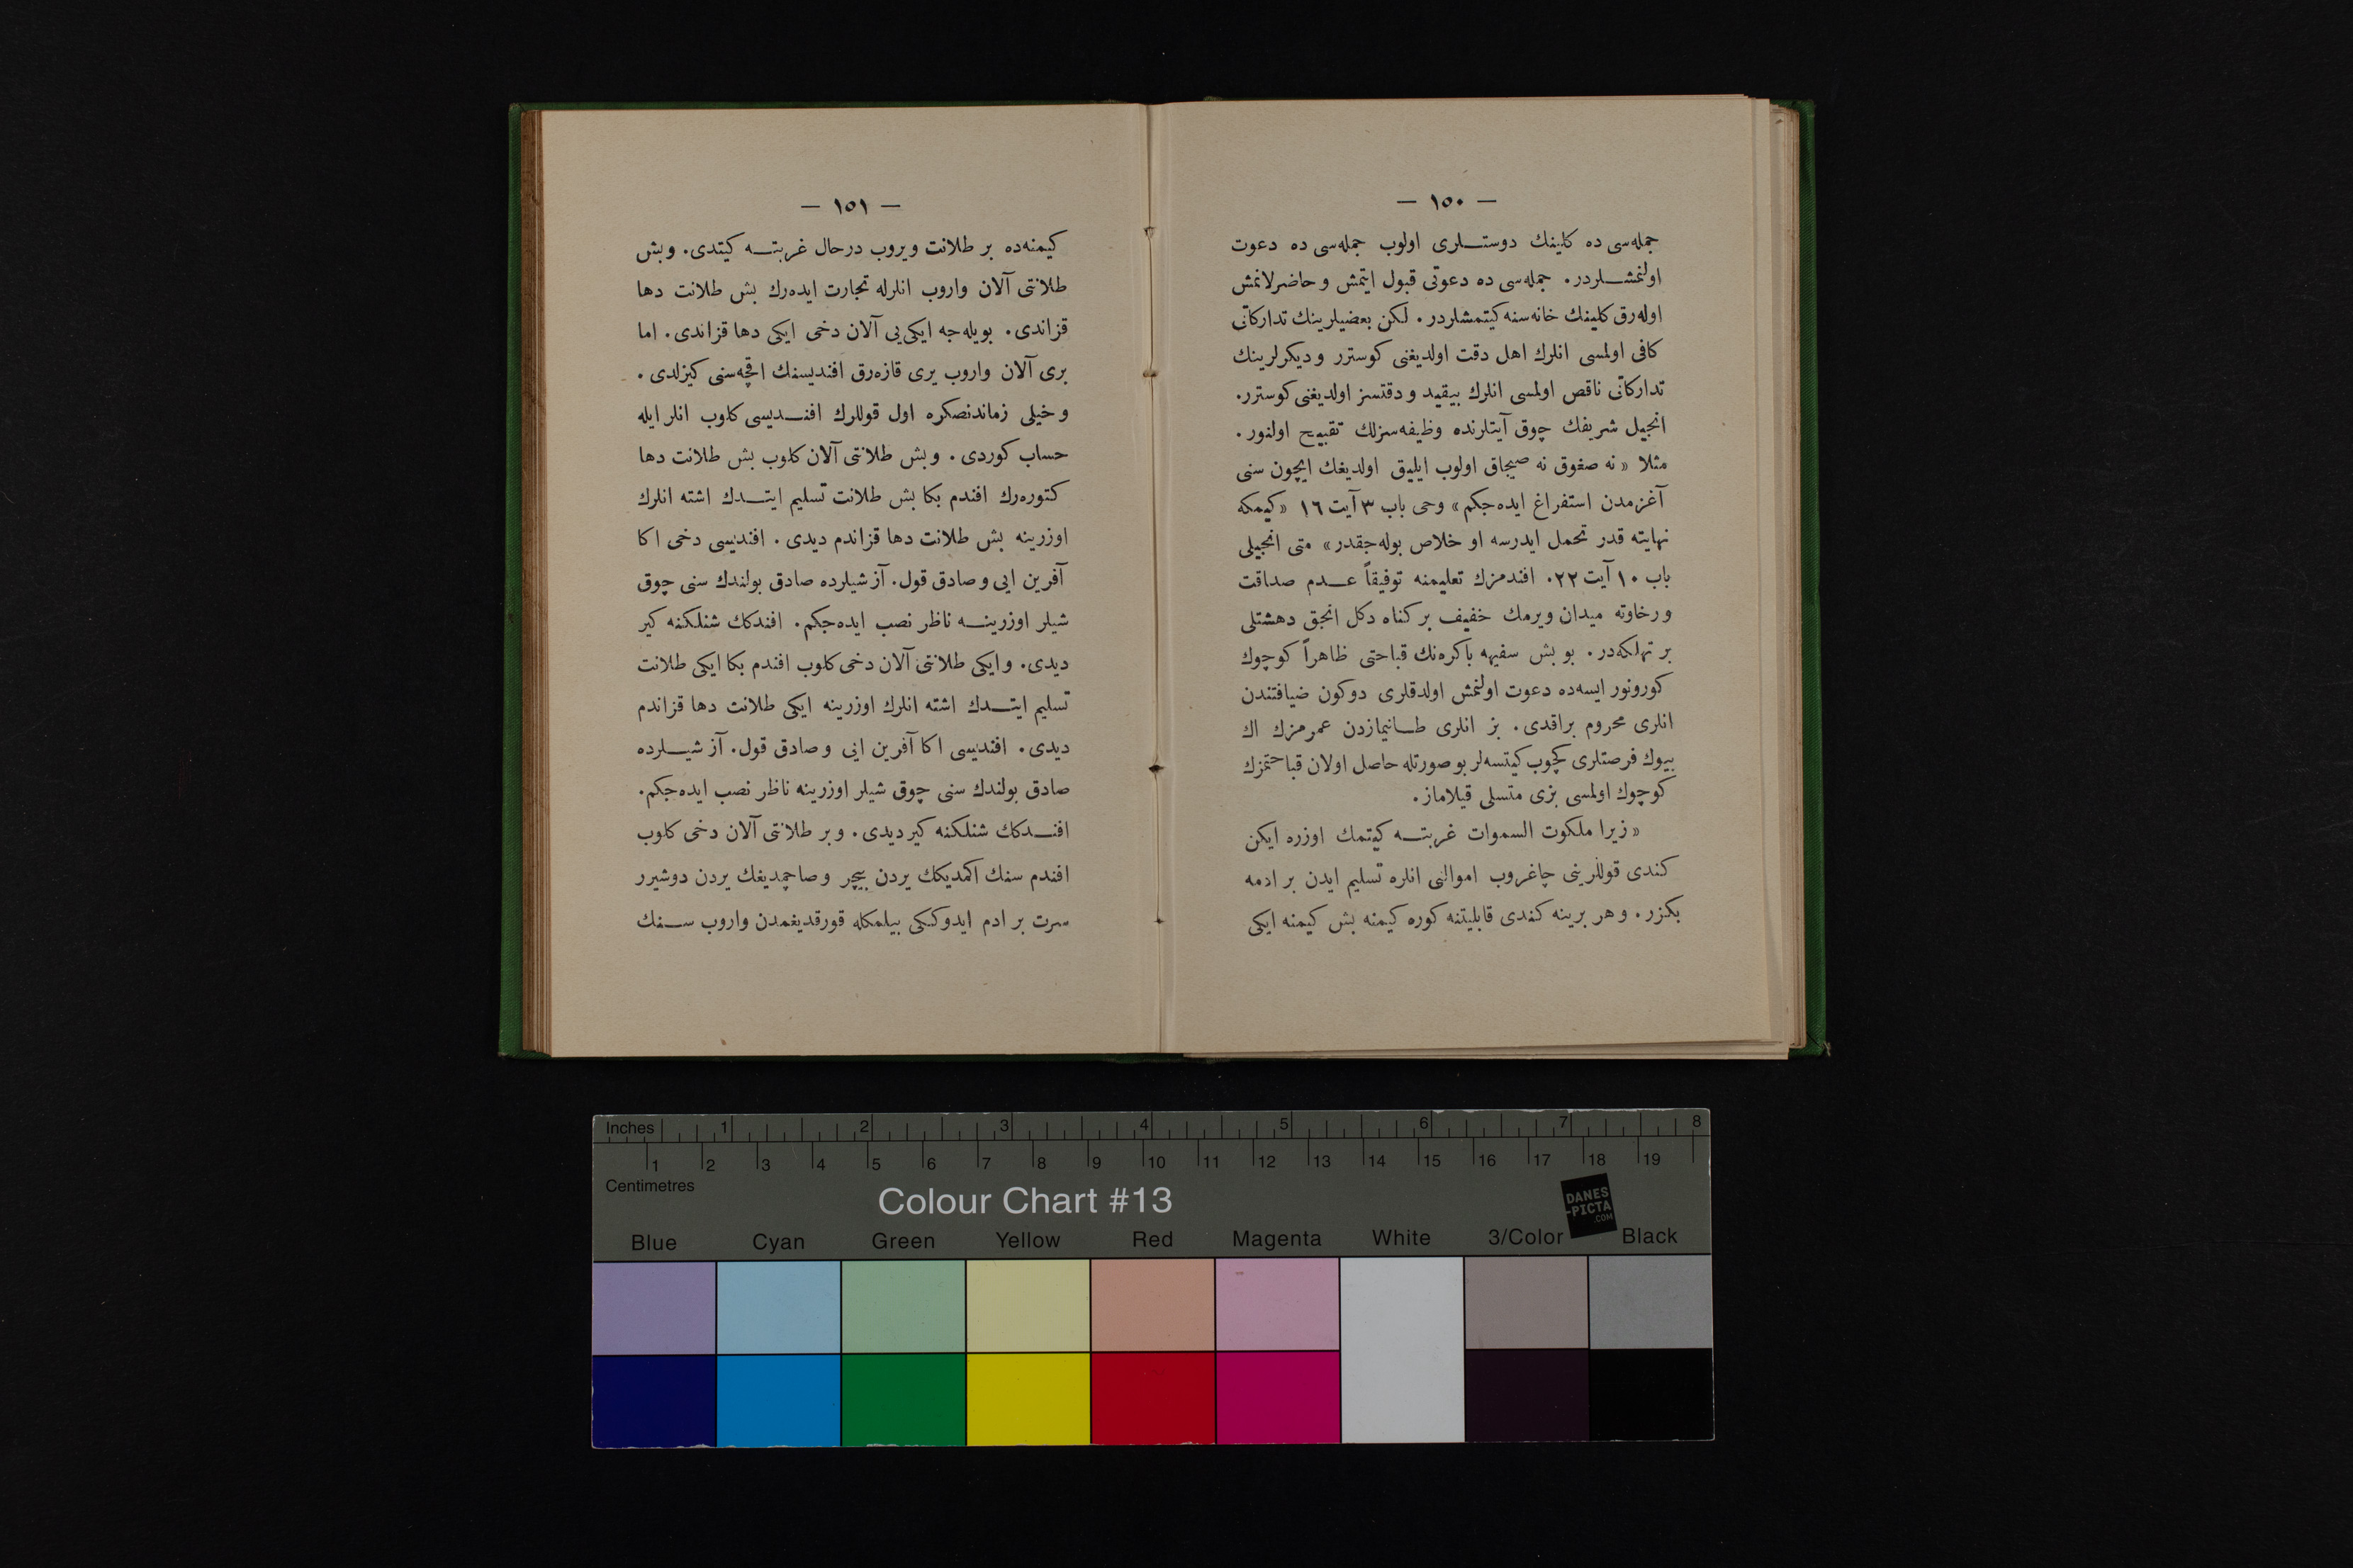 — ١٥٠ —
جمله‌سی ده كلینك دوستلری اولوب جمله‌سی ده دعوت
اولنمشلردر. جمله‌سی ده دعوتی قبول ایتمش و حاضرلانمش
اوله‌رق كلینك خانه‌سنه كیتمشلردر. لكن بعضیلرینك تداركاتی
كافی اولمسی انلرك اهل دقت اولدیغنی كوسترر و دیكرلرینك
تداركاتی ناقص اولمسی انلرك بیقید و دقتسز اولدیغنی كوسترر.
انجیل شریفك چوق آیتلرنده وظیفه‌سزلك تقبیح اولنور.
مثلا «نه صغوق نه صیجاق اولوب ایلیق اولدیغك ایچون سنی
آغزمدن استفراغ ایده‌جكم» وحی باب ٣ آیت ١٦ «كیمكه
نهایته قدر تحمل ایدرسه او خلاص بوله‌جقدر» متی انجیلی
باب ١٠ آیت ٢٢. افندمزك تعلیمنه توفیقاً عدم صداقت
و رخاوته میدان ویرمك خفیف بر كناه دكل انجق دهشتلی
بر تهلكه‌در. بو بش سفیهه باكره‌نك قباحتی ظاهراً كوچوك
كورونور ایسه‌ده دعوت اولنمش اولدقلری دوكون ضیافتندن
انلری محروم براقدی. بز انلری طانیمازدن عمرمزك اك
بیوك فرصتلری كچوب كیتسه‌لر بو صورتله حاصل اولان قباحتمزك
كوچوك اولمسی بزی متسلی قیلاماز.
«زیرا ملكوت السموات غربته كیتمك اوزره ایكن
كندی قوللرینی چاغروب اموالنی انلره تسلیم ایدن بر ادمه
بكزر. و هر برینه كندی قابلیتنه كوره كیمنه بش كیمنه ایكی
— ١٥١ —
كیمنه‌ده بر طلانت ویروب درحال غربته كیتدی. و بش
طلانتی آلان واروب انلرله تجارت ایده‌رك بش طلانت دها
قزاندی. بویله‌جه ایكی‌یی آلان دخی ایكی دها قزاندی. اما
بری آلان واروب یری قازه‌رق افندیسنك اقچه‌سنی كیزلدی.
و خیلی زماندنصكره اول قوللرك افندیسی كلوب انلر ایله
حساب كوردی. و بش طلانتی آلان كلوب بش طلانت دها
كتوره‌رك افندم بكا بش طلانت تسلیم ایتدك اشته انلرك
اوزرینه بش طلانت دها قزاندم دیدی. افندیسی دخی اكا
آفرین ایی و صادق قول. آز شیلرده صادق بولندك سنی چوق
شیلر اوزرینه ناظر نصب ایده‌جكم. افندكك شنلكنه كیر
دیدی. و ایكی طلانتی آلان دخی كلوب افندم بكا ایكی طلانت
تسلیم ایتدك اشته انلرك اوزرینه ایكی طلانت دها قزاندم
دیدی. افندیسی اكا آفرین ایی و صادق قول. آز شیلرده
صادق بولندك سنی چوق شیلر اوزرینه ناظر نصب ایده‌جكم.
افندكك شنلكنه كیر دیدی. و بر طلانتی آلان دخی كلوب
افندم سنك اكمدیكك یردن بیچر و صاچمدیغك یردن دوشیرر
سرت بر ادم ایدوككی بیلمكله قورقدیغمدن واروب سنك
Inches 1 2 3 4 5 6 7 8
1 2 3 4 5 6 7 8 9 10 11 12 13 14 15 16 17 18 19
Centimetres
Colour Chart #13
DANES
-PICTA
.COM
Blue Cyan Green Yellow Red Magenta White 3/Color Black